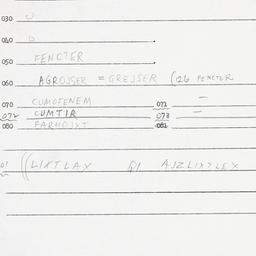 030 U
040 b
050 FENCTER
060 AGROJSER = GREJSER (26 FENCTER
070 CUMOFENEM 071 —
072 CUMTIR 073 —
080 FARHOJXT 081
01 ((LIXTLAX AJZLIXTLEX